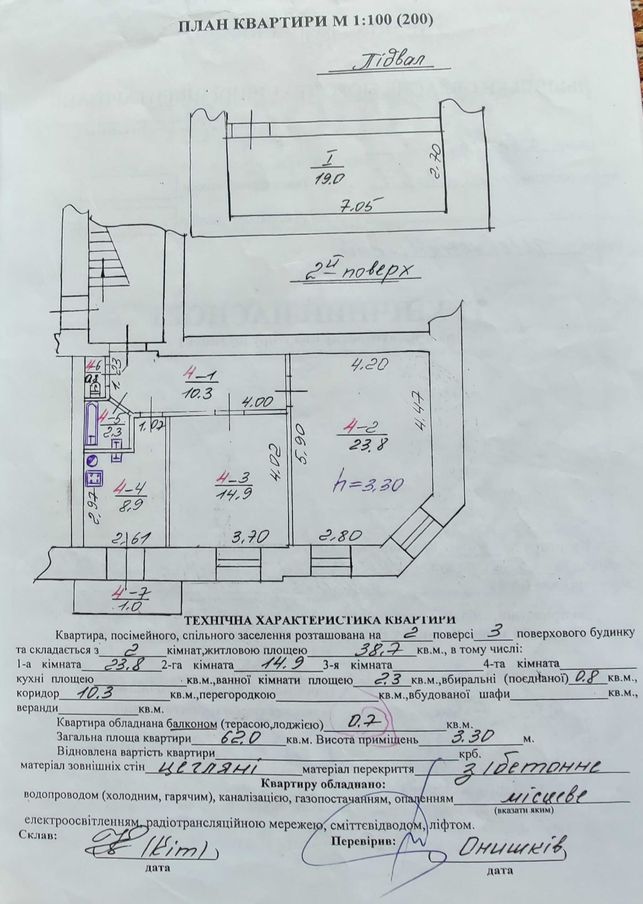 ПЛАН КВАРТИРИ М 1:100 (200)
Підвал
I
19.0
2.70
7.05
2й поверх
4-6
0.8
1.23
4-1
10.3
4.00
4.20
4-5
2.3
1.02
4-2
23.8
4.47
5.90
4.02
4-3
14.9
h=3.30
4-4
8.9
2.97
2.61
3.70
2.80
4-7
1.0
ТЕХНІЧНА ХАРАКТЕРИСТИКА КВАРТИРИ
Квартира, посімейного, спільного заселення розташована на 2 поверсі 3 поверхового будинку
та складається з 2 кімнат,житловою площею 38,7 кв.м., в тому числі:
1-а кімната 23.8 2-га кімната 14.9 3-я кімната 4-та кімната
кухні площею кв.м.,ванної кімнати площею 2.3 кв.м.,вбиральні (поєднаної) 0.8 кв.м.,
коридор 10.3 кв.м.,перегородкою кв.м.,вбудованої шафи кв.м.,
веранди кв.м.
Квартира обладнана балконом (терасою,лоджією) 0.7 кв.м.
Загальна площа квартири 62.0 кв.м. Висота приміщень 3.30 м.
Відновлена вартість квартири крб.
матеріал зовнішніх стін цегляні матеріал перекриття з/бетонне
Квартиру обладнано:
водопроводом (холодним, гарячим), каналізацією, газопостачанням, опаленням місцеве
(вказати яким)
електроосвітленням, радіотрансляційною мережею, сміттєвідводом, ліфтом.
Склав: (Кіт) Перевірив: Онишків
дата дата